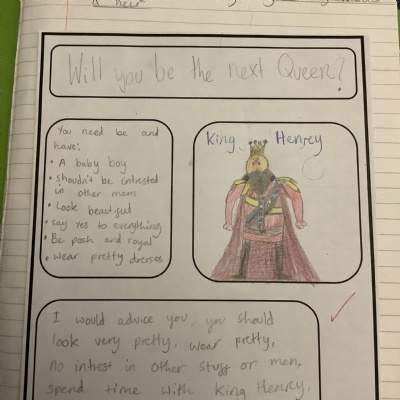 & heir
Will you be the next Queen?
You need be and
have:
• A baby boy
• Shouldn't be intrested
in other men
• Look beautiful
• Say yes to everything
• Be posh and royal
• Wear pretty dresses
King Henrey
I would advice you, you should
look very pretty, wear pretty,
no intrest in other stuff or men,
spend time with King Henrey,